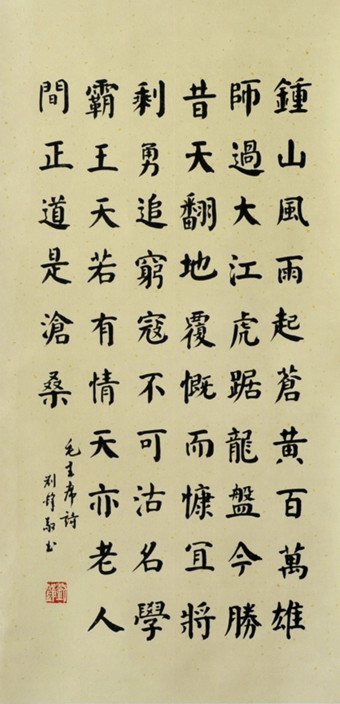 鍾山風雨起蒼黄百萬雄
師過大江虎踞龍盤今勝
昔天翻地覆慨而慷宜將
剩勇追窮寇不可沽名學
霸王天若有情天亦老人
間正道是滄桑
毛主席詩